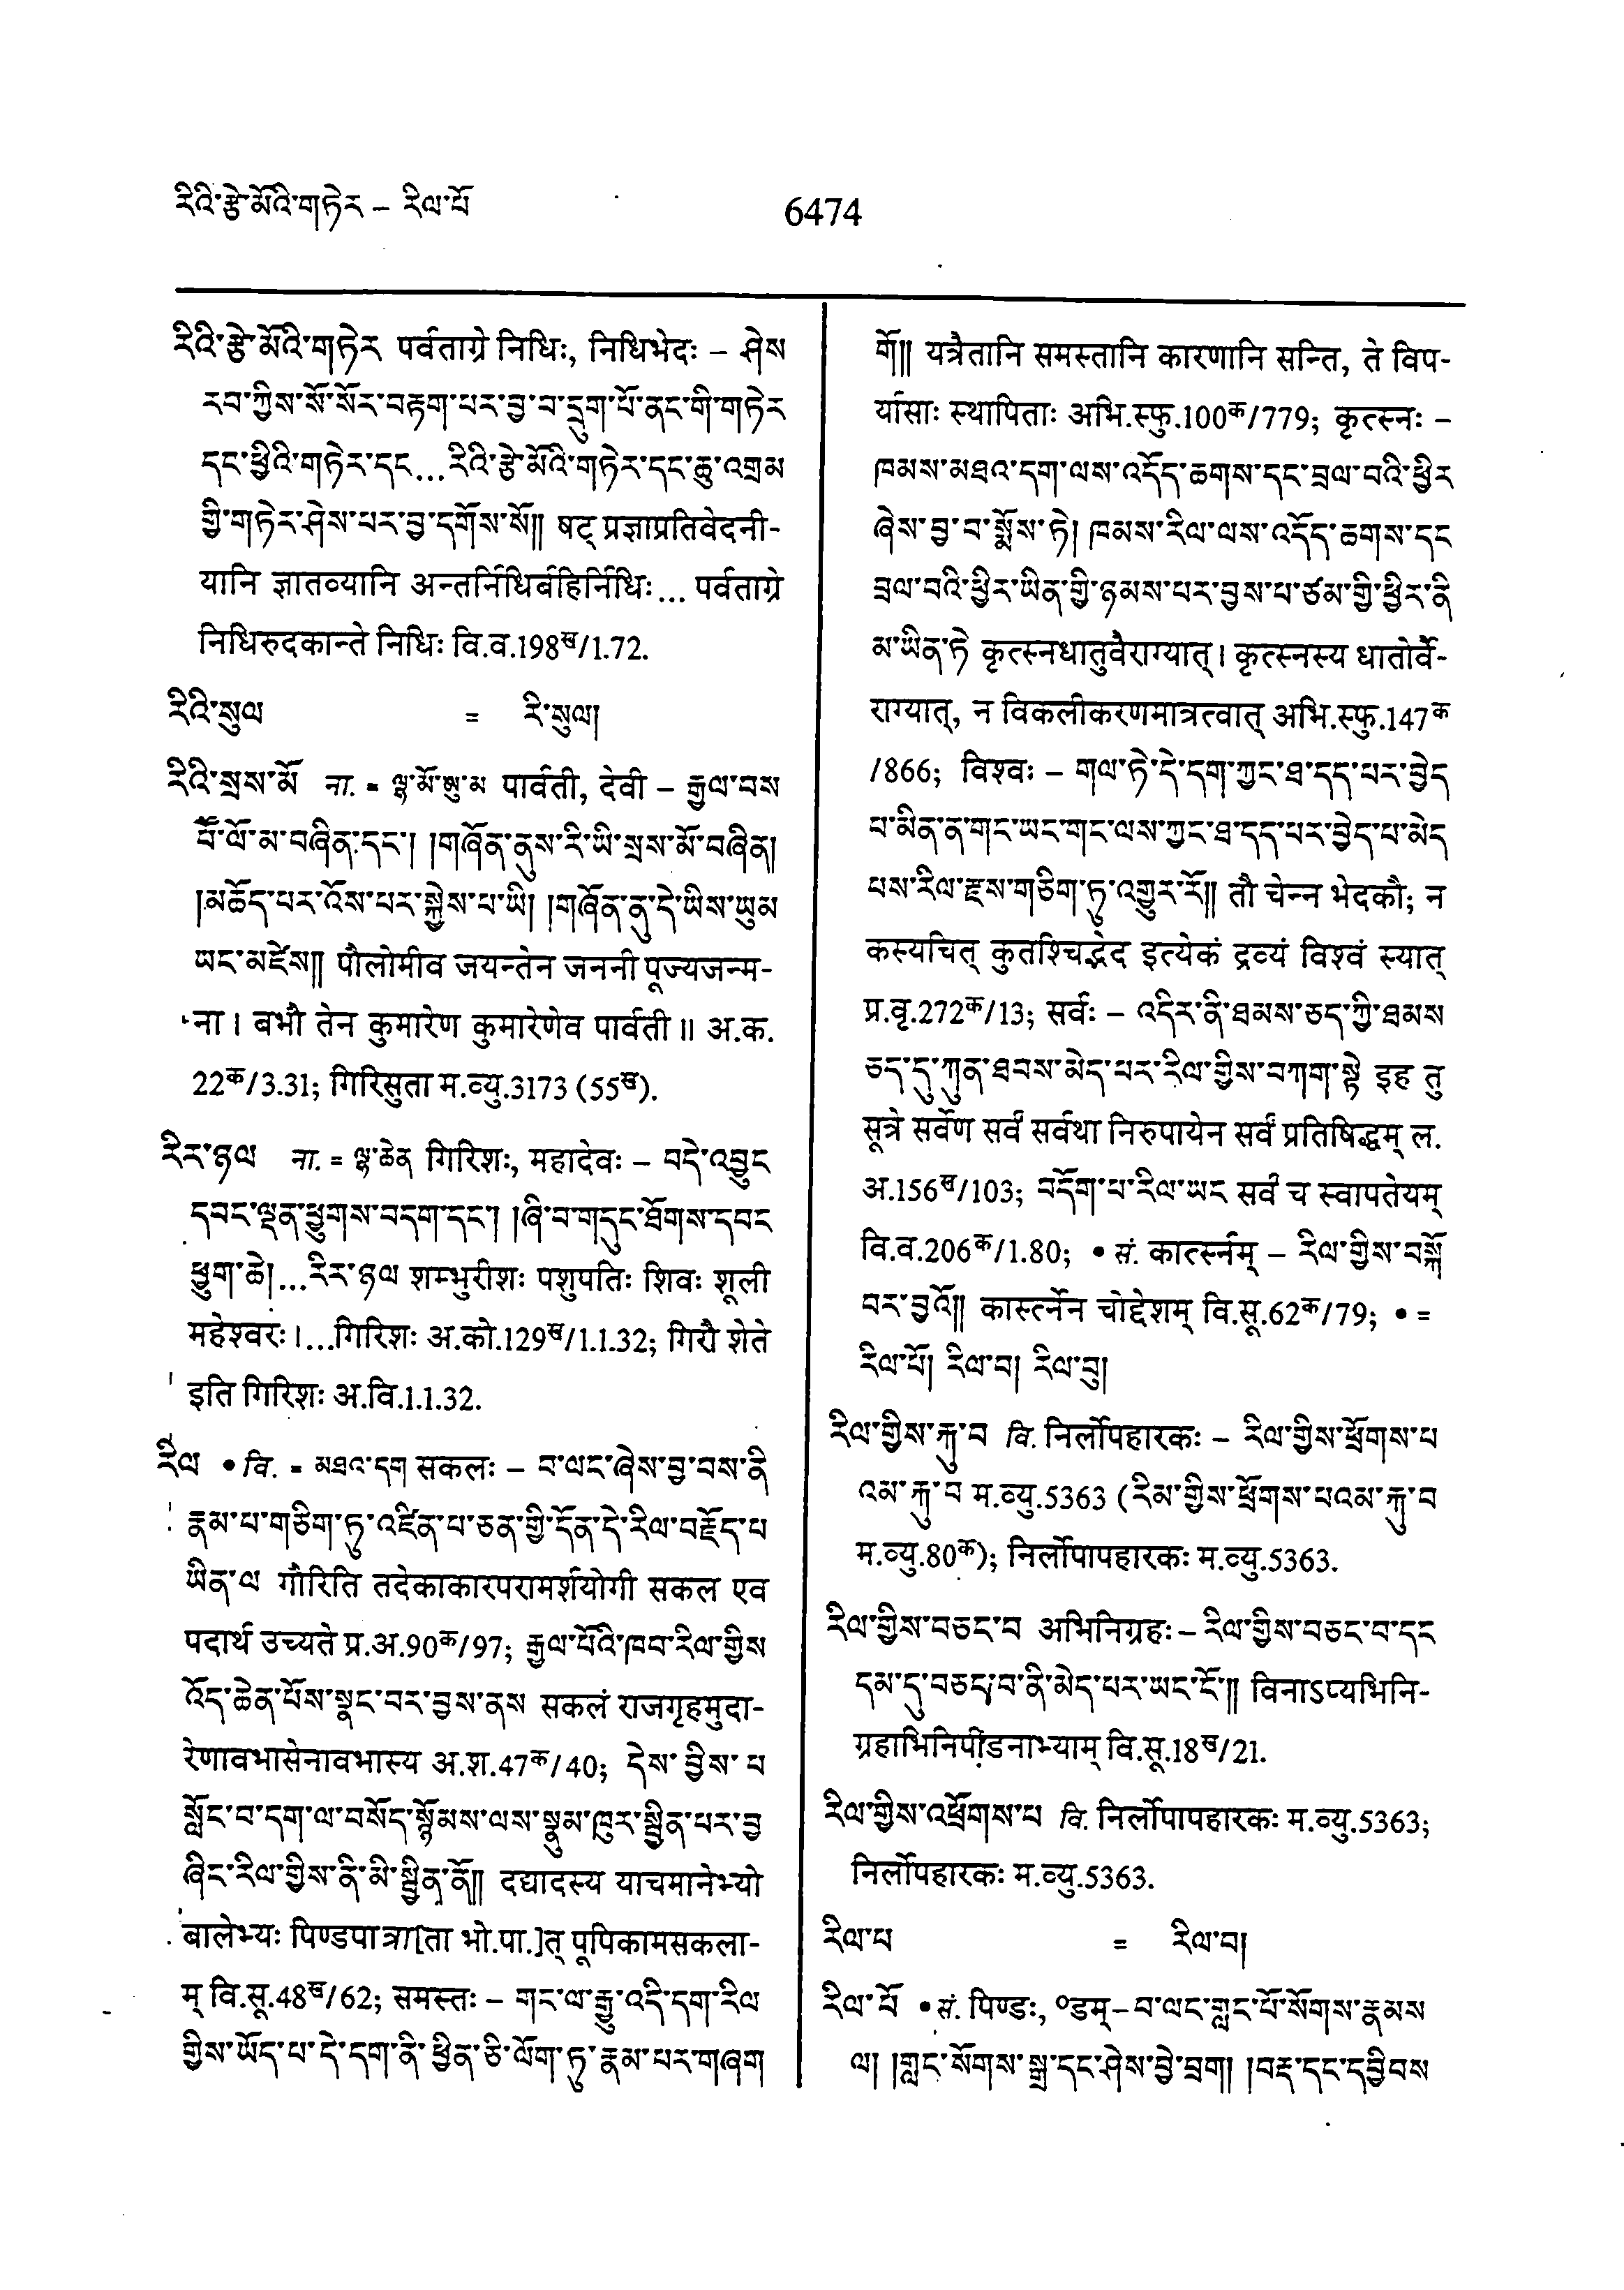 རིའི་རྩེ་མོའི་གཏེར – རིལ་པོ
6474
རིའི་རྩེ་མོའི་གཏེར पर्वताग्रे निधिः, निधिभेदः – ཤེས
རབ་ཀྱིས་སོ་སོར་བརྟག་པར་བྱ་བ་དྲུག་པོ་ནང་གི་གཏེར
དང་ཕྱིའི་གཏེར་དང...རིའི་རྩེ་མོའི་གཏེར་དང་ཆུ་འགྲམ
གྱི་གཏེར་ཤེས་པར་བྱ་དགོས་སོ༎ षट् प्रज्ञाप्रतिवेदनी-
यानि ज्ञातव्यानि अन्तर्निधिर्बहिर्निधिः... पर्वताग्रे
निधिरुदकान्ते निधिः वि.व.198ख/1.72.
རིའི་སུལ = རི་སུལ།
རིའི་སྲས་མོ ना. = ལྷ་མོ་ཨུ་མ पार्वती, देवी – རྒྱལ་བས
པཽ་ལོ་མ་བཞིན་དང་། །གཞོན་ནུས་རི་ཡི་སྲས་མོ་བཞིན།
།མཆོད་པར་འོས་པར་སྐྱེས་པ་ཡི། །གཞོན་ནུ་དེ་ཡིས་ཡུམ
ཡང་མཛེས༎ पौलोमीव जयन्तेन जननी पूज्यजन्म-
ना । बभौ तेन कुमारेण कुमारेणेव पार्वती ॥ अ.क.
22क/3.31; गिरिसुता म.व्यु.3173 (55ख).
རིར་ཉལ ना. = ལྷ་ཆེན गिरिशः, महादेवः – བདེ་འབྱུང
དབང་ལྡན་ཕྱུགས་བདག་དང་། །ཞི་བ་གདུང་ཐོགས་དབང
ཕྱུག་ཆེ།...རིར་ཉལ शम्भुरीशः पशुपतिः शिवः शूली
महेश्वरः ।...गिरिशः अ.को.129ख/1.1.32; गिरौ शेते
इति गिरिशः अ.वि.1.1.32.
རིལ • वि. = མཐའ་དག सकलः – བ་ལང་ཞེས་བྱ་བས་ནི
རྣམ་པ་གཅིག་ཏུ་འཛིན་པ་ཅན་གྱི་དོན་དེ་རིལ་བརྗོད་པ
ཡིན་ལ गौरिति तदेकाकारपरामर्शयोगी सकल एव
पदार्थ उच्यते प्र.अ.90क/97; རྒྱལ་པོའི་ཁབ་རིལ་གྱིས
འོད་ཆེན་པོས་སྣང་བར་བྱས་ནས सकलं राजगृहमुदा-
रेणावभासेनावभास्य अ.श.47क/40; དེས་བྱིས་པ
སློང་བ་དག་ལ་བསོད་སྙོམས་ལས་སྣུམ་ཁུར་སྦྱིན་པར་བྱ
ཞིང་རིལ་གྱིས་ནི་མི་སྦྱིན་ནོ༎ दद्यादस्य याचमानेभ्यो
बालेभ्यः पिण्डपात्रा[ता भो.पा.]त् पूपिकामसकला-
म् वि.सू.48ख/62; समस्तः – གང་ལ་རྒྱུ་འདི་དག་རིལ
གྱིས་ཡོད་པ་དེ་དག་ནི་ཕྱིན་ཅི་ལོག་ཏུ་རྣམ་པར་གཞག
གོ༎ यत्रैतानि समस्तानि कारणानि सन्ति, ते विप-
र्यासाः स्थापिताः अभि.स्फु.100क/779; कृत्स्नः –
ཁམས་མཐའ་དག་ལས་འདོད་ཆགས་དང་བྲལ་བའི་ཕྱིར
ཞེས་བྱ་བ་སྨོས་ཏེ། ཁམས་རིལ་ལས་འདོད་ཆགས་དང
བྲལ་བའི་ཕྱིར་ཡིན་གྱི་ཉམས་པར་བྱས་པ་ཙམ་གྱི་ཕྱིར་ནི
མ་ཡིན་ཏེ कृत्स्नधातुवैराग्यात् । कृत्स्नस्य धातोर्वै-
राग्यात्, न विकलीकरणमात्रत्वात् अभि.स्फु.147क
/866; विश्वः – གལ་ཏེ་དེ་དག་ཀྱང་ཐ་དད་པར་བྱེད
པ་མིན་ན་གང་ཡང་གང་ལས་ཀྱང་ཐ་དད་པར་བྱེད་པ་མེད
པས་རིལ་རྫས་གཅིག་ཏུ་འགྱུར་རོ༎ तौ चेन्न भेदकौ; न
कस्यचित् कुतश्चिद्भेद इत्येकं द्रव्यं विश्वं स्यात्
प्र.वृ.272क/13; सर्वः – འདིར་ནི་ཐམས་ཅད་ཀྱི་ཐམས
ཅད་དུ་ཀུན་ཐབས་མེད་པར་རིལ་གྱིས་བཀག་སྟེ इह तु
सूत्रे सर्वेण सर्वं सर्वथा निरुपायेन सर्वं प्रतिषिद्धम् ल.
अ.156ख/103; བདོག་པ་རིལ་ཡང सर्वं च स्वापतेयम्
वि.व.206क/1.80; • सं. कार्त्स्नम् – རིལ་གྱིས་བསྐོ
བར་བྱའོ༎ कार्स्त्नेन चोद्देशम् वि.सू.62क/79; • =
རིལ་པོ། རིལ་བ། རིལ་བུ།
རིལ་གྱིས་རྐུ་བ वि. निर्लोपहारकः – རིལ་གྱིས་ཕྲོགས་པ
འམ་རྐུ་བ म.व्यु.5363 (རིམ་གྱིས་ཕྲོགས་པའམ་རྐུ་བ
म.व्यु.80क); निर्लोपापहारकः म.व्यु.5363.
རིལ་གྱིས་བཅང་བ अभिनिग्रहः – རིལ་གྱིས་བཅང་བ་དང
དམ་དུ་བཅད་བ་ནི་མེད་པར་ཡང་ངོ་༎ विनाऽप्यभिनि-
ग्रहाभिनिपीडनाभ्याम् वि.सू.18ख/21.
རིལ་གྱིས་འཕྲོགས་པ वि. निर्लोपापहारकः म.व्यु.5363;
निर्लोपहारकः म.व्यु.5363.
རིལ་པ = རིལ་བ།
རིལ་པོ • सं. पिण्डः, ०डम् – བ་ལང་གླང་པོ་སོགས་རྣམས
ལ། །གླང་སོགས་སྒྲ་དང་ཤེས་བྱེ་བྲག། །བརྡ་དང་དབྱིབས